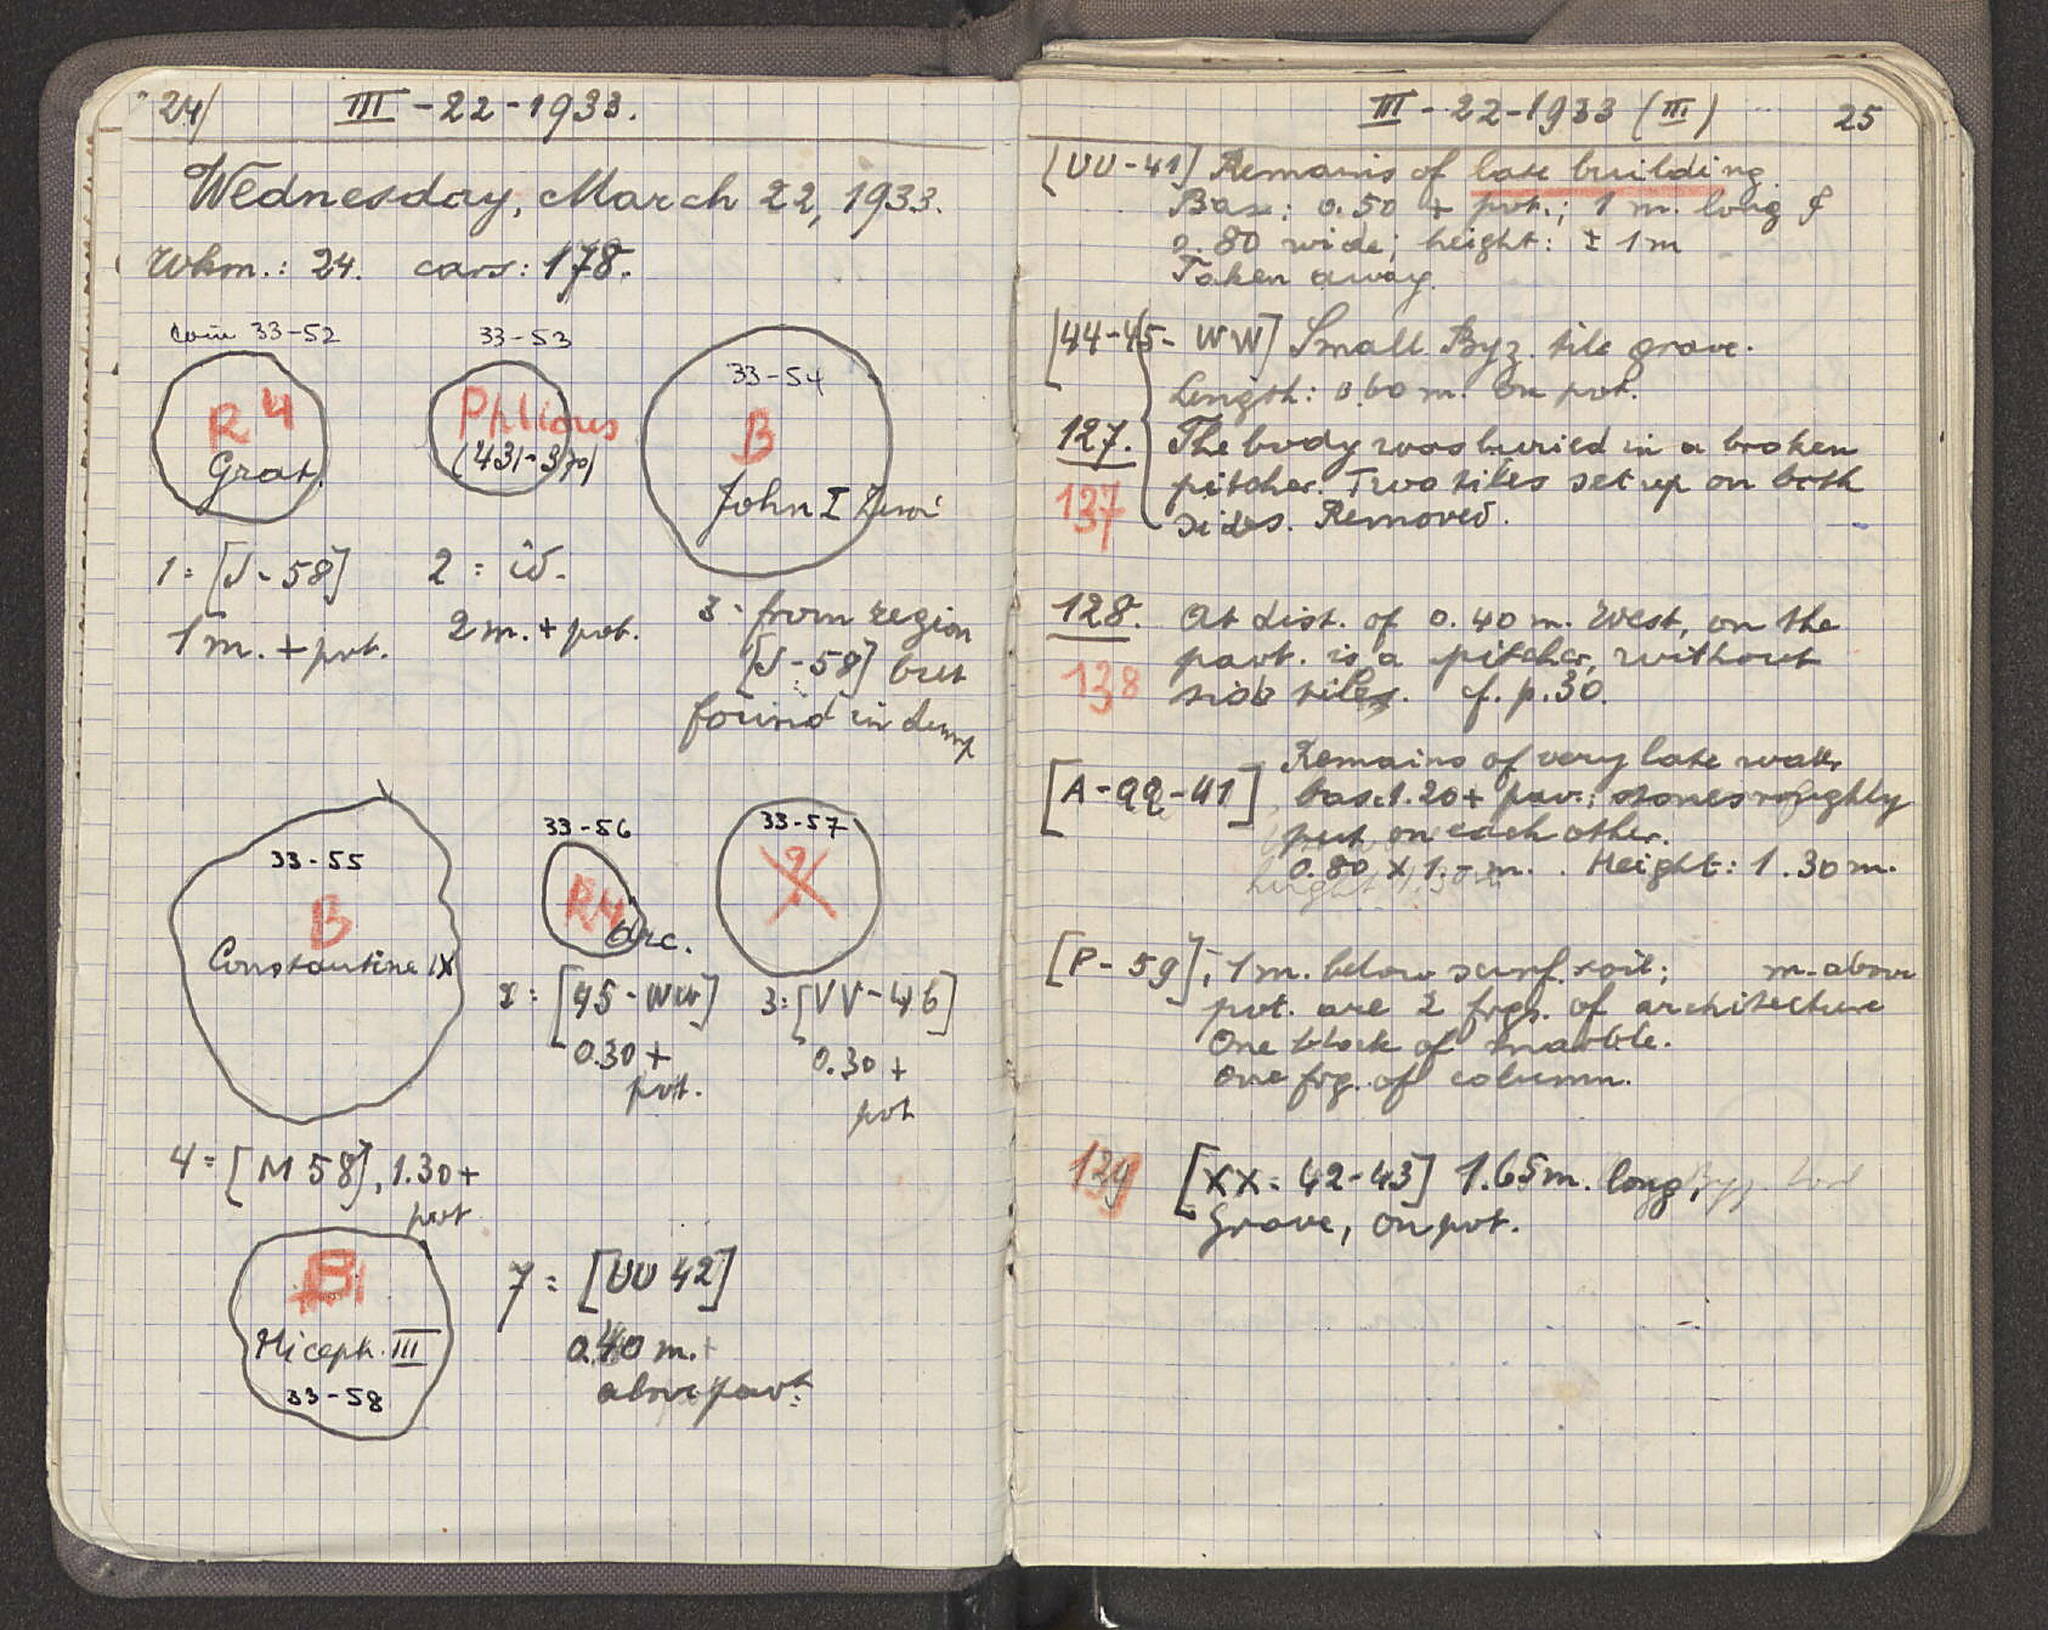 24/ III - 22 - 1933.
Wednesday, March 22, 1933.
Wkm.: 24. cars: 178.
coin 33-52
R 4
Grat.
33-53
Phlious
(431-370)
33-54
B
John I Zimi
1 = [J - 58]
1 m. + pvt.
2 = id.
2 m. + pvt.
3 - from region
[J - 58] but
found in dump
33-55
B
Constantine IX
33-56
R4
Arc.
33-57
?
2 = [45 - WW]
0.30 +
pvt.
3 = [VV - 46]
0.30 +
pvt
4 = [M 58], 1.30 +
pvt
B
Niceph. III
33-58
7 = [UU 42]
0.40 m. +
above pavt.
III - 22 - 1933 (III) 25
[UU - 41] Remains of late building.
Base: 0.50 + pvt.; 1 m. long &
0.80 wide; height: ± 1 m
Taken away.
[44-45 - WW] Small Byz. tile grave.
Length: 0.60 m. on pvt.
127. The body was buried in a broken
137 pitcher. Two tiles set up on both
sides. Removed.
128. At dist. of 0.40 m. West, on the
pavt. is a pitcher, without
138 side tiles. cf. p. 30.
Remains of very late walls
[A - QQ - 41] base 1.20 + pav.; stones roughly
put on each other.
0.80 x 1.- m. . Height: 1.30 m.
[P - 59], 1 m. below surf. soil; m. above
pvt. are 2 frgs. of architecture
One block of marble.
One frg. of column.
139 [XX - 42-43] 1.65 m. long,
Grave, on pvt.